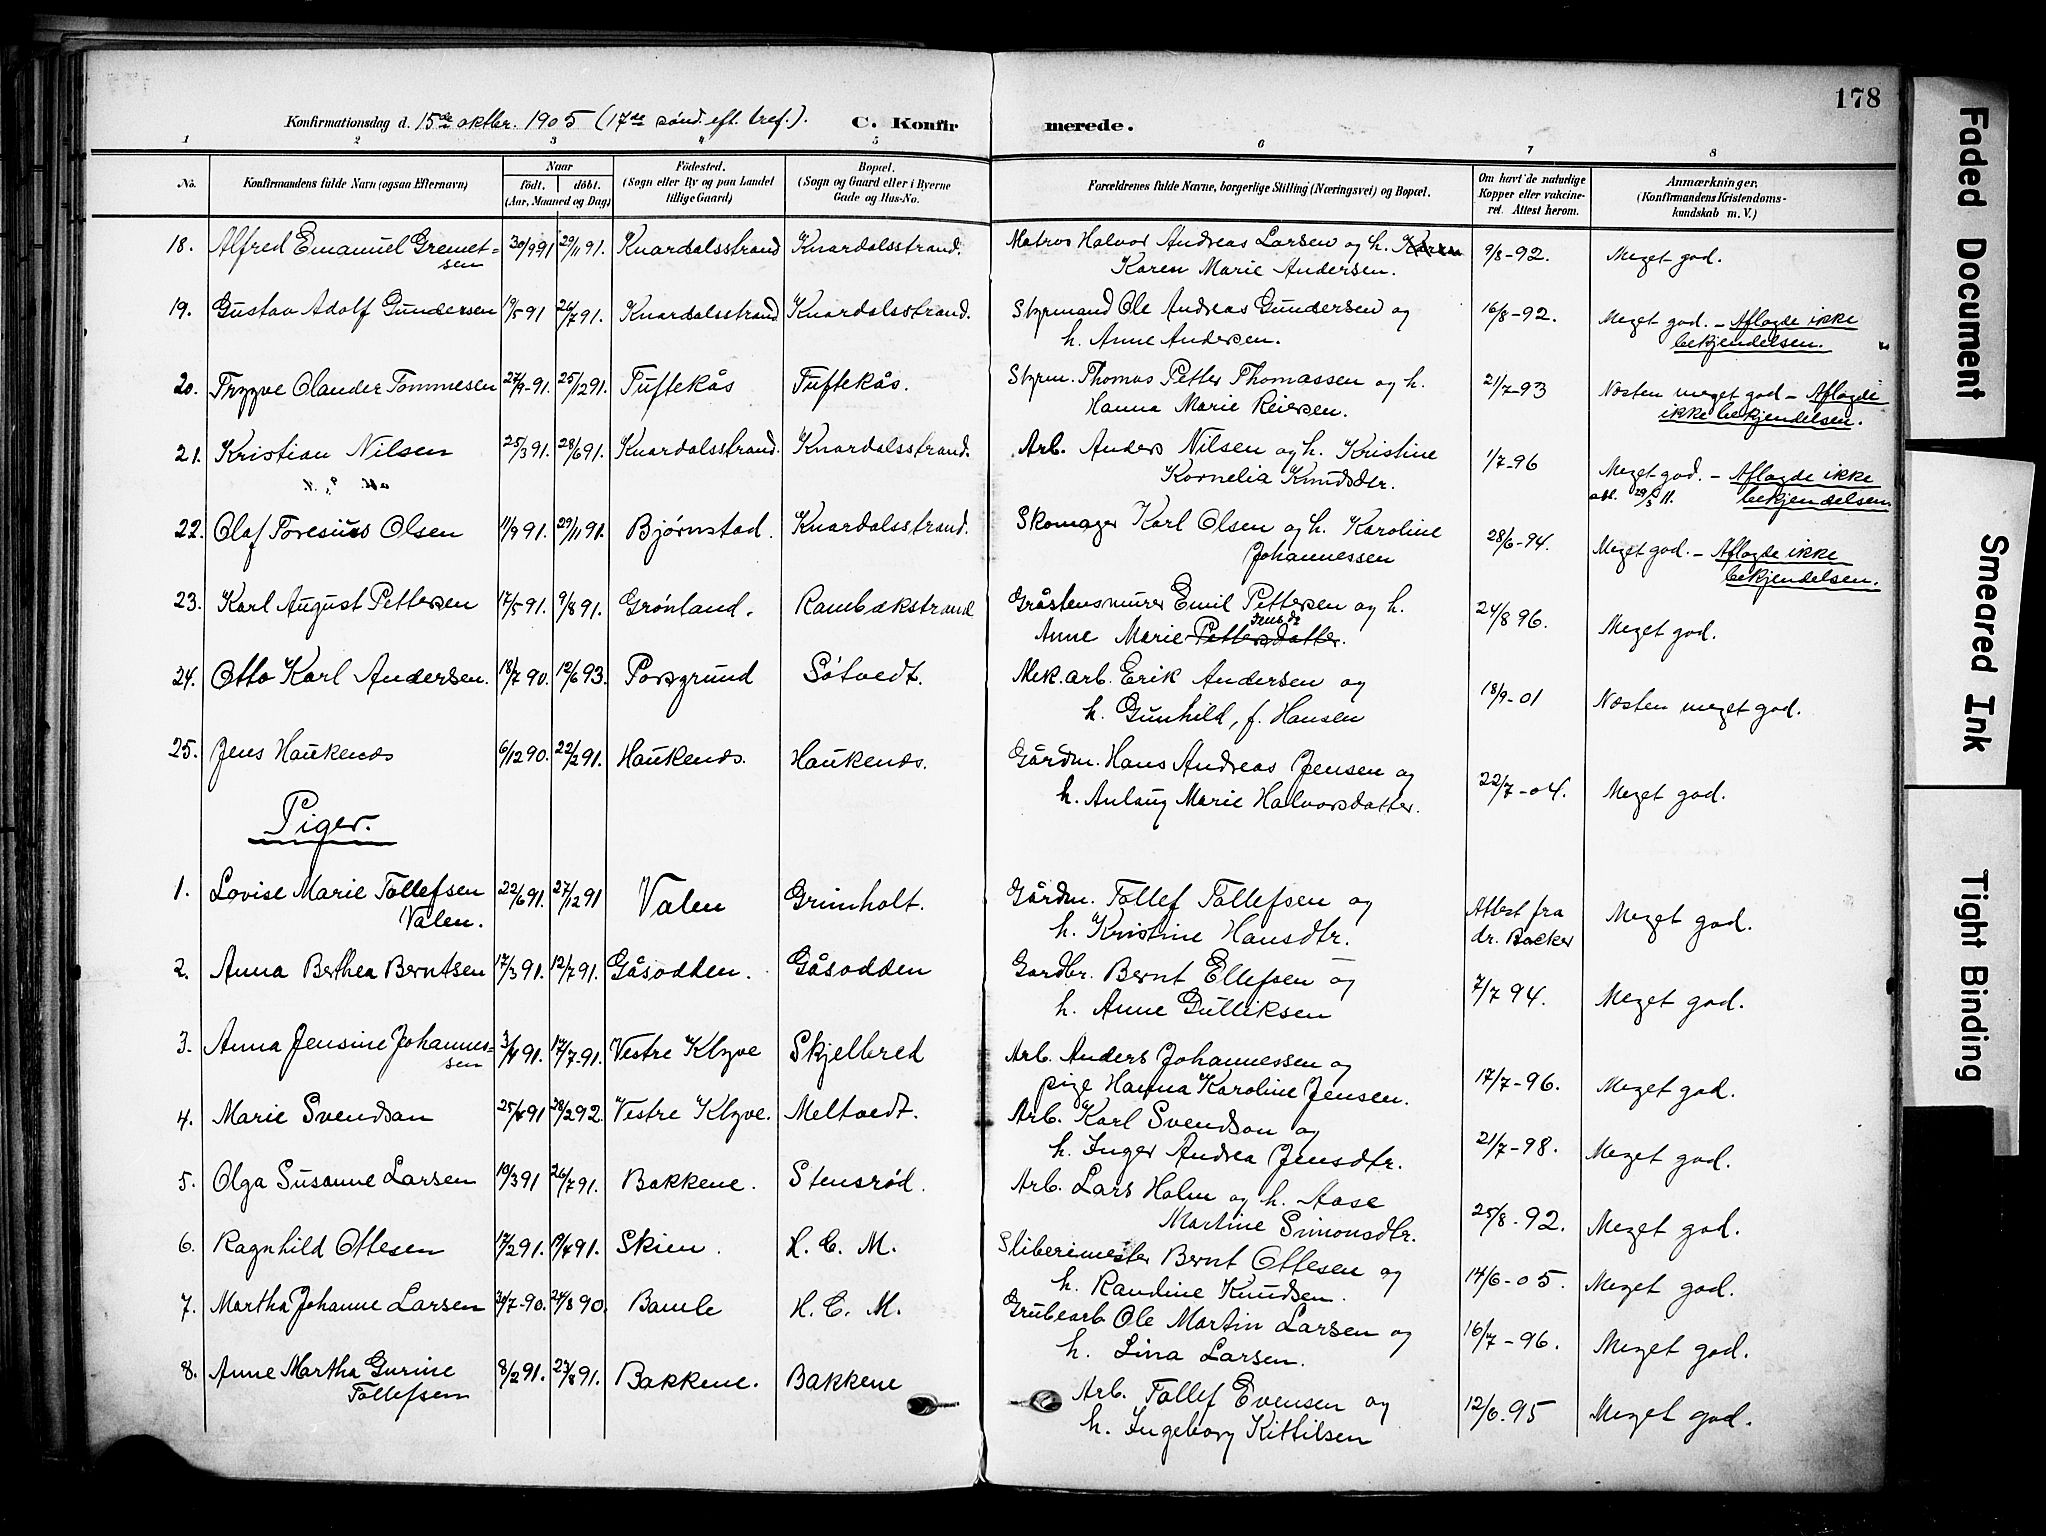 178
Konfirmationsdag d. 15de oktbr. 1905 (17de sønd. eft. tref.). C. Konfirmerede.
1 2 3 4 5 6 7 8
No. Konfirmandens fulde Navn (ogsaa Efternavn) Naar født. døbt. (Aar, Maaned og Dag) Fødested. (Sogn eller By og paa Landet tillige Gaard) Bopæl. (Sogn og Gaard eller i Byerne Gade og Hus-No. Forældrenes fulde Navne, borgerlige Stilling (Næringsvei) og Bopæl. Om havt de naturlige Kopper eller vakcineret. Attest herom. Anmærkninger. (Konfirmandens Kristendomskundskab m. V.)
18. Alfred Emanuel Gremetsen 30/9 91 29/11 91. Knardalsstrand Knardalsstrand. Matros Halvor Andreas Larsen og h. Karen
Karen Marie Andersen. 9/8-92. Meget god.
19. Gustav Adolf Gundersen 19/5 91 26/7 91. Knardalsstrand Knardalsstrand. Styrmand Ole Andreas Gundersen og
h. Anne Andersen. 16/8-92. Meget god. - Aflagde ikke
bekjendelsen.
20. Trygve Olander Tommesen 27/9-91. 25/12 91. Tuftekås Tuftekås. Styrm. Thomas Petter Thomassen og h.
Hanna Marie Reiersen. 21/7-93 Næsten meget god - Aflagde
ikke bekjendelsen.
21. Kristian Nilsen 25/3 91. 28/6 91. Knardalsstrand. Knardalsstrand. Arb. Anders Nilsen og h. Kristine
Kornelia Knudsdtr. 1/7-96 Meget god. - Aflagde ikke
att. 29/5 11. bekjendelsen
22. Olaf Toresius Olsen 11/9 91. 29/11 91. Bjørnstad. Knardalsstrand. Skomager Karl Olsen og h. Karoline
Johannessen 28/6-94. Meget god. - Aflagde ikke
bekjendelsen.
23. Karl August Pettersen 17/5 91. 9/8 91. Grønland. Rambækstrand Gråstensmurer Emil Pettersen og h.
Anne Marie Pettersdatter. 24/8 96. Meget god.
24. Otto Karl Andersen. 18/7 90. 12/6 93. Porsgrund Søtvedt. Mek. arb. Erik Andersen og
h. Gunhild, f. Hansen 18/9-01 Næsten meget god.
25. Jens Haukenæs 6/12 90. 22/2 91. Haukenæs. Haukenæs. Gårdm. Hans Andreas Jensen og
h. Anlaug Marie Halvorsdatter. 22/7-04. Meget god.
Piger.
1. Lovise Marie Tollefsen
Valen. 22/6 91. 27/12 91 Valen Grimholt. Gårdm. Tollef Tollefsen og
h. Kristine Hansdtr. Attest fra
dr. Backer Meget god.
2. Anna Berthea Berntsen 17/3 91. 12/7 91. Gåsodden. Gåsodden Gårdbr. Bernt Ellefsen og
h. Anne Gulliksen 7/7 94. Meget god.
3. Anna Jensine Johannessen 3/4 91. 12/7-91. Vestre Klyve Skjelbred Arb. Anders Johannessen og
pige Hanna Karoline Jensen. 17/7-96. Meget god.
4. Marie Svendson 25/4 91 28/2 92. Vestre Klyve. Meltvedt. Arb. Karl Svendson og
h. Inger Andrea Jensdtr. 21/7-98. Meget god.
5. Olga Susanne Larsen 19/3 91 26/7 91. Bakkene. Stensrød. Arb. Lars Holm og h. Aase
Martine Simonsdtr. 25/8-92. Meget god.
6. Ragnhild Ottesen 17/2 91. 19/4 91. Skien. H. C. M. Sliberimester Bernt Ottesen og
h. Randine Knudsen. 14/6-05. Meget god.
7. Martha Johanne Larsen 30/7-90. 24/8 90. Bamle H. C. M. Grubearb Ole Martin Larsen og
h. Lina Larsen. 16/7-96. Meget god.
8. Anne Martha Gurine
Tollefsen 8/2 91. 23/8 91. Bakkene. Bakkene Arb. Tollef Evensen og
h. Ingeborg Kittilsen 12/6.95 Meget god.
Faded Document
Smeared Ink
Tight Binding